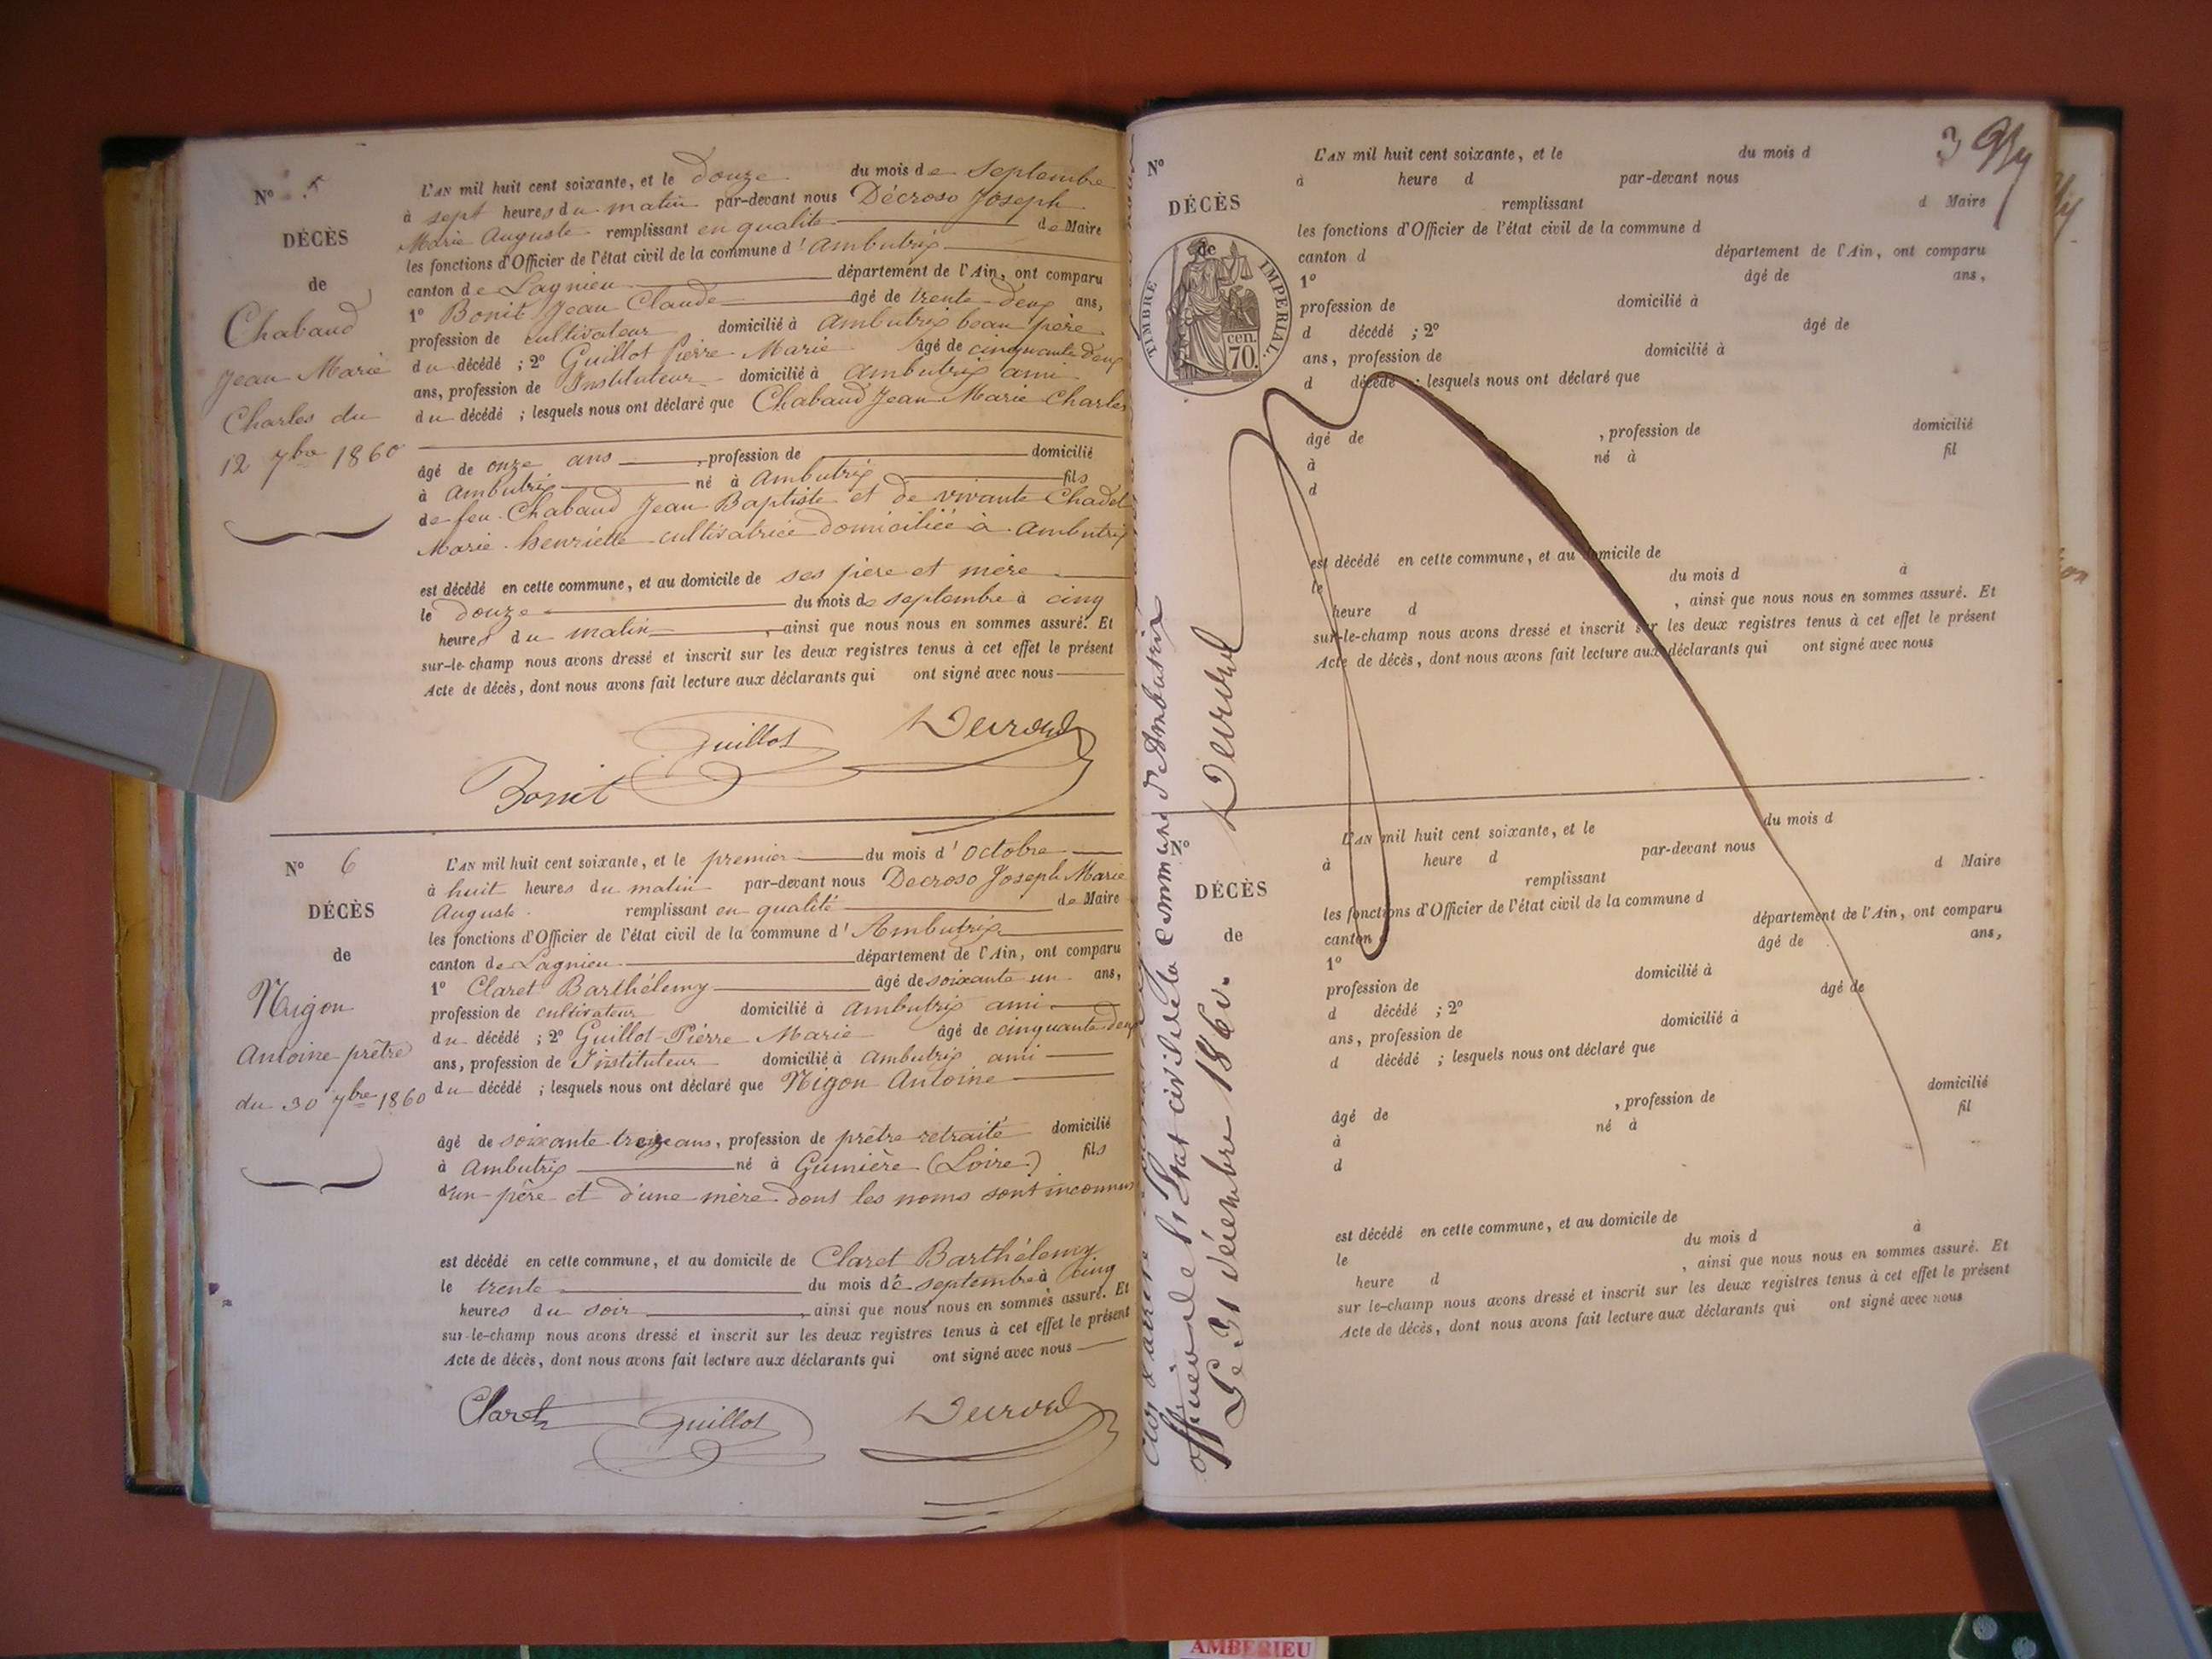 N° 5
DÉCÈS
de
Chabaud
Jean Marie
Charles du
12 7bre 1860
L'AN mil huit cent soixante, et le douze du mois de Septembre
à sept heures du matin par-devant nous Décroso Joseph
Marie Auguste remplissant en qualité de Maire
les fonctions d'Officier de l'état civil de la commune d'Ambutrix
canton de Lagnieu département de l'Ain, ont comparu
1° Bonit Jean Claude âgé de trente deux ans,
profession de cultivateur domicilié à Ambutrix beau père
du décédé ; 2° Guillot Pierre Marie âgé de cinquante deux
ans, profession de Instituteur domicilié à Ambutrix ami
du décédé ; lesquels nous ont déclaré que Chabaud Jean Marie Charles
âgé de onze ans , profession de domicilié
à Ambutrix né à Ambutrix fils
de feu Chabaud Jean Baptiste et de vivante Chadel
Marie henriette cultivatrice domiciliée à Ambutrix
est décédé en cette commune, et au domicile de ses père et mère
le douze du mois de septembre à cinq
heures du matin , ainsi que nous nous en sommes assuré. Et
sur-le-champ nous avons dressé et inscrit sur les deux registres tenus à cet effet le présent
Acte de décès, dont nous avons fait lecture aux déclarants qui ont signé avec nous
Guillot
Bonit
N° 6
DÉCÈS
de
Nigon
Antoine prêtre
du 30 7bre 1860
L'AN mil huit cent soixante, et le premier du mois d'Octobre
à huit heures du matin par-devant nous Decroso Joseph Marie
Auguste remplissant en qualité de Maire
les fonctions d'Officier de l'état civil de la commune d'Ambutrix
canton de Lagnieu département de l'Ain, ont comparu
1° Claret Barthélemy âgé de soixante un ans,
profession de cultivateur domicilié à Ambutrix ami
du décédé ; 2° Guillot Pierre Marie âgé de cinquante deux
ans, profession de Instituteur domicilié à Ambutrix ami
du décédé ; lesquels nous ont déclaré que Nigon Antoine
âgé de soixante treize ans, profession de prêtre retraité domicilié
à Ambutrix né à Gumière (Loire) fils
d'un père et d'une mère dont les noms sont inconnus
est décédé en cette commune, et au domicile de Claret Barthélemy
le trente du mois de septembre à cinq
heures du soir , ainsi que nous nous en sommes assuré. Et
sur-le-champ nous avons dressé et inscrit sur les deux registres tenus à cet effet le présent
Acte de décès, dont nous avons fait lecture aux déclarants qui ont signé avec nous
Claret Guillot
officier de l'État civil de la commune d'Ambutrix
Le 31 décembre 1860.
3
N°
DÉCÈS
de
TIMBRE IMPERIAL.
cen. 70.
L'AN mil huit cent soixante, et le du mois d
à heure d par-devant nous
remplissant d Maire
les fonctions d'Officier de l'état civil de la commune d
canton d département de l'Ain, ont comparu
1° âgé de ans,
profession de domicilié à
d décédé ; 2° âgé de
ans, profession de domicilié à
d décédé ; lesquels nous ont déclaré que
âgé de , profession de domicilié
à né à fil
d
est décédé en cette commune, et au domicile de
le du mois d à
heure d , ainsi que nous nous en sommes assuré. Et
sur-le-champ nous avons dressé et inscrit sur les deux registres tenus à cet effet le présent
Acte de décès, dont nous avons fait lecture aux déclarants qui ont signé avec nous
N°
DÉCÈS
de
L'AN mil huit cent soixante, et le du mois d
à heure d par-devant nous
remplissant d Maire
les fonctions d'Officier de l'état civil de la commune d
canton d département de l'Ain, ont comparu
1° âgé de ans,
profession de domicilié à
d décédé ; 2° âgé de
ans, profession de domicilié à
d décédé ; lesquels nous ont déclaré que
âgé de , profession de domicilié
à né à fil
d
est décédé en cette commune, et au domicile de
le du mois d à
heure d , ainsi que nous nous en sommes assuré. Et
sur le-champ nous avons dressé et inscrit sur les deux registres tenus à cet effet le présent
Acte de décès, dont nous avons fait lecture aux déclarants qui ont signé avec nous
AMBERIEU